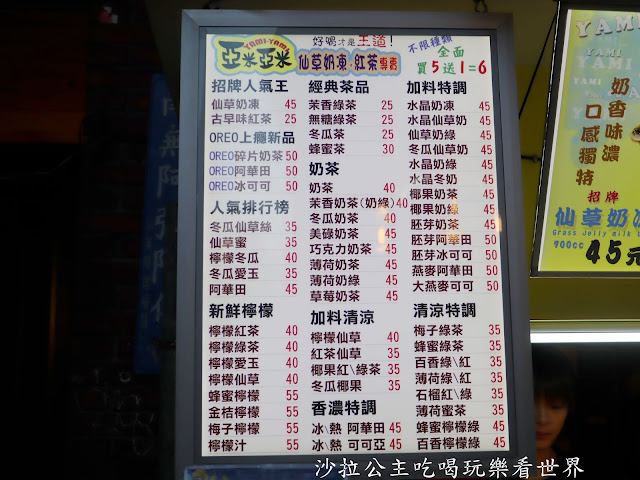 亞米亞米
YAMI-YAMI
好喝才是王道!
仙草奶凍&紅茶專賣
不限種類
全面
買5送1=6
招牌人氣王
仙草奶凍 45
古早味紅茶 25
OREO上癮新品
OREO碎片奶茶 50
OREO阿華田 50
OREO冰可可 50
人氣排行榜
冬瓜仙草綠 35
仙草蜜 35
檸檬冬瓜 40
冬瓜愛玉 35
阿華田 45
新鮮檸檬
檸檬紅茶 40
檸檬綠茶 40
檸檬愛玉 40
檸檬仙草 40
蜂蜜檸檬 55
金桔檸檬 55
梅子檸檬 55
檸檬汁 55
經典茶品
茉香綠茶 25
無糖綠茶 25
冬瓜茶 25
蜂蜜茶 30
奶茶
奶茶 40
茉香奶茶(奶綠) 40
冬瓜奶茶 40
美碌奶茶 45
巧克力奶茶 45
薄荷奶茶 45
薄荷奶綠 45
草莓奶茶 45
加料清涼
檸檬仙草 40
紅茶仙草 35
椰果紅\綠茶 35
冬瓜椰果 35
香濃特調
冰\熱 阿華田 45
冰\熱 可可亞 45
加料特調
水晶奶凍 45
水晶仙草奶 45
仙草奶綠 45
冬瓜仙草奶 45
水晶奶綠 45
水晶冬奶 45
椰果奶茶 45
椰果奶綠 45
胚芽奶茶 45
胚芽阿華田 50
胚芽冰可可 50
燕麥阿華田 50
大燕麥可可 50
清涼特調
梅子綠茶 35
蜂蜜綠茶 35
百香綠\紅 35
薄荷綠\紅 35
石榴紅\綠 35
薄荷蜜茶 35
蜂蜜檸檬綠 45
百香檸檬綠 45
YAMI
YAMI
YAMI
奶香味濃
口感獨特
招牌
仙草奶凍
Grass Jelly milk t
900cc
45元
沙拉公主吃喝玩樂看世界